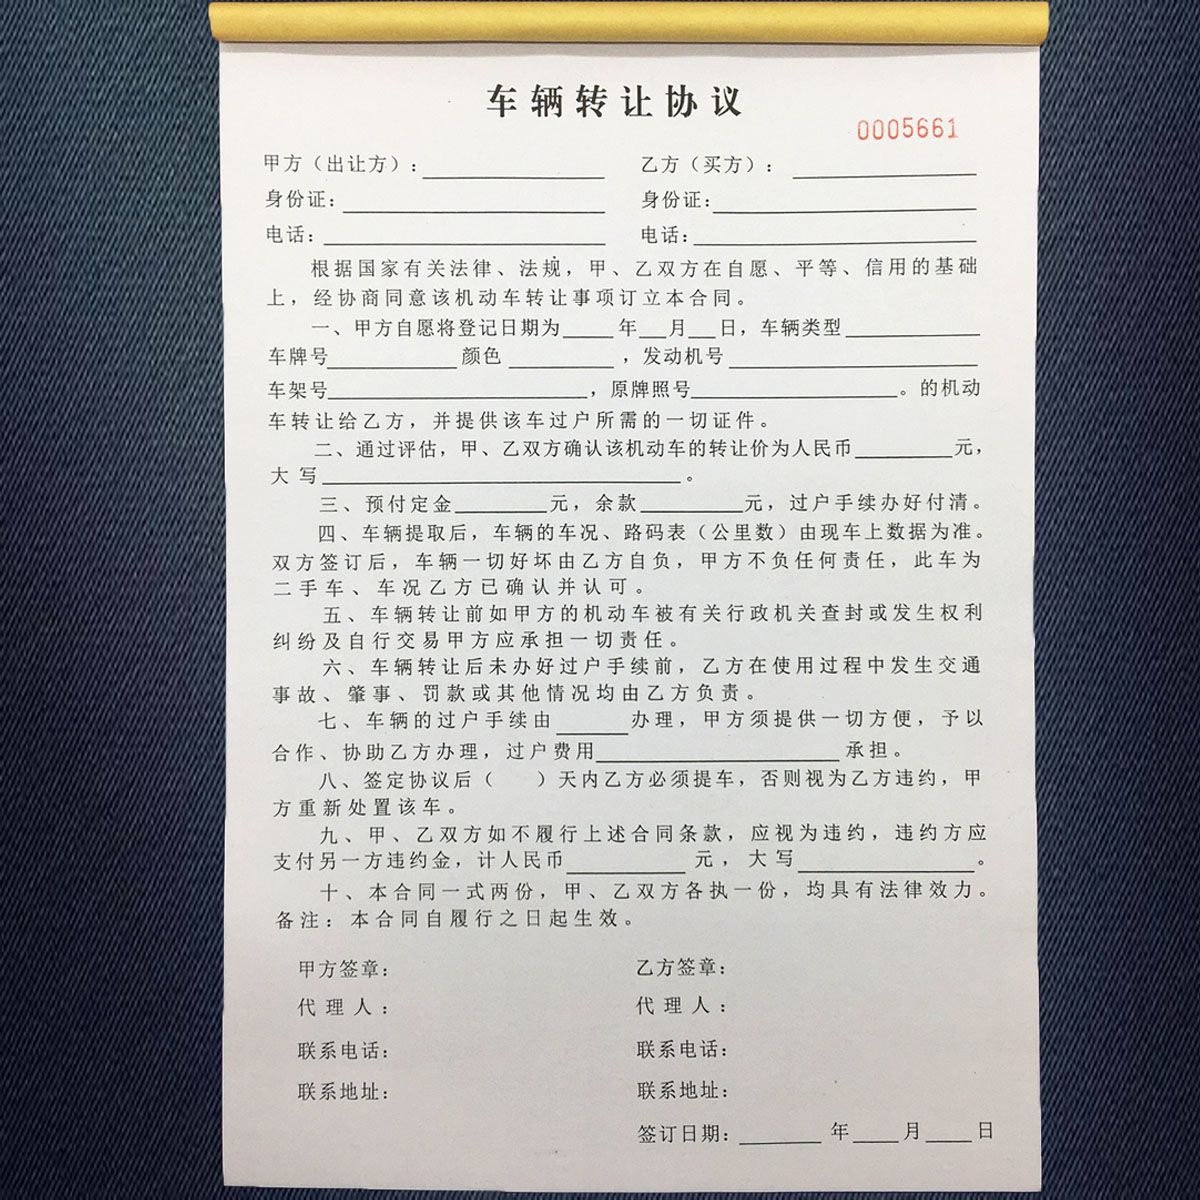 车辆转让协议
0005661
甲方（出让方）：________ 乙方（买方）：________
身份证：________ 身份证：________
电话：________ 电话：________
根据国家有关法律、法规，甲、乙双方在自愿、平等、信用的基础
上，经协商同意该机动车转让事项订立本合同。
一、甲方自愿将登记日期为____年__月__日，车辆类型________
车牌号________颜色________，发动机号________
车架号________，原牌照号________。的机动
车转让给乙方，并提供该车过户所需的一切证件。
二、通过评估，甲、乙双方确认该机动车的转让价为人民币________元，
大写________。
三、预付定金________元，余款________元，过户手续办好付清。
四、车辆提取后，车辆的车况、路码表（公里数）由现车上数据为准。
双方签订后，车辆一切好坏由乙方自负，甲方不负任何责任，此车为
二手车、车况乙方已确认并认可。
五、车辆转让前如甲方的机动车被有关行政机关查封或发生权利
纠纷及自行交易甲方应承担一切责任。
六、车辆转让后未办好过户手续前，乙方在使用过程中发生交通
事故、肇事、罚款或其他情况均由乙方负责。
七、车辆的过户手续由______办理，甲方须提供一切方便，予以
合作、协助乙方办理，过户费用________承担。
八、签定协议后（ ）天内乙方必须提车，否则视为乙方违约，甲
方重新处置该车。
九、甲、乙双方如不履行上述合同条款，应视为违约，违约方应
支付另一方违约金，计人民币________元，大写________。
十、本合同一式两份，甲、乙双方各执一份，均具有法律效力。
备注：本合同自履行之日起生效。
甲方签章： 乙方签章：
代理人： 代理人：
联系电话： 联系电话：
联系地址： 联系地址：
签订日期：______年____月____日